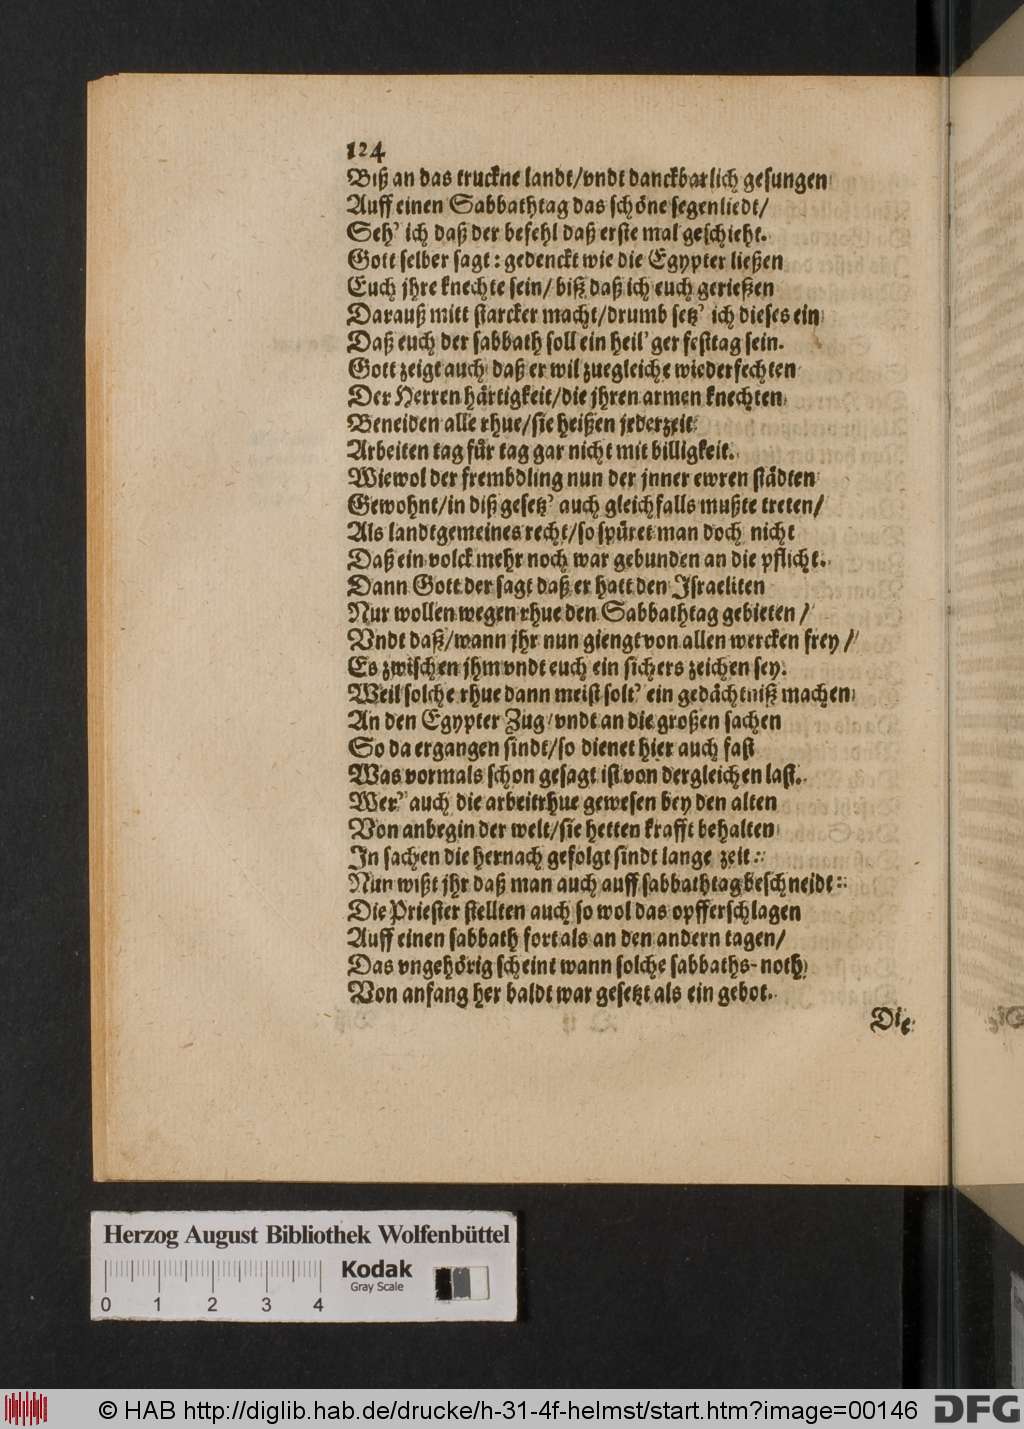 124
Biß an das truckne landt/vndt danckbarlich gesungen
Auff einen Sabbathtag das schöne segenliedt/
Seh' ich daß der befehl daß erste mal geschieht.
Gott selber sagt: gedenckt wie die Egypter ließen
Euch jhre knechte sein/ biß daß ich euch gerießen
Darauß mitt starcker macht/drumb setz' ich dieses ein
Daß euch der sabbath soll ein heil'ger festtag sein.
Gott zeigt auch daß er wil zuegleiche wiederfechten
Der Herren härtigkeit/die jhren armen knechten
Beneiden alle rhue/sie heißen jederzeit
Arbeiten tag für tag gar nicht mit billigkeit.
Wiewol der frembdling nun der jnner ewren städten
Gewohnt/in diß gesetz' auch gleichfalls mußte treten/
Als landtgemeines recht/so spüret man doch nicht
Daß ein volck mehr noch war gebunden an die pflicht.
Dann Gott der sagt daß er hatt den Israeliten
Nur wollen wegen rhue den Sabbathtag gebieten /
Vndt daß/wann jhr nun giengt von allen wercken frey /
Es zwischen jhm vndt euch ein sichers zeichen sey.
Weil solche rhue dann meist solt' ein gedächtniß machen
An den Egypter Zug/vndt an die großen sachen
So da ergangen sindt/so dienet hier auch fast
Was vormals schon gesagt ist von dergleichen last.
Wer' auch die arbeitrhue gewesen bey den alten
Von anbegin der welt/sie hetten krafft behalten
In sachen die hernach gefolgt sindt lange zeit:
Nun wißt jhr daß man auch auff sabbathtag beschneidt:
Die Priester stellten auch so wol das opfferschlagen
Auff einen sabbath fort als an den andern tagen/
Das vngehörig scheint wann solche sabbaths-noth
Von anfang her baldt war gesetzt als ein gebot.
Die
Herzog August Bibliothek Wolfenbüttel
Kodak
Gray Scale
0 1 2 3 4
© HAB http://diglib.hab.de/drucke/h-31-4f-helmst/start.htm?image=00146 DFG